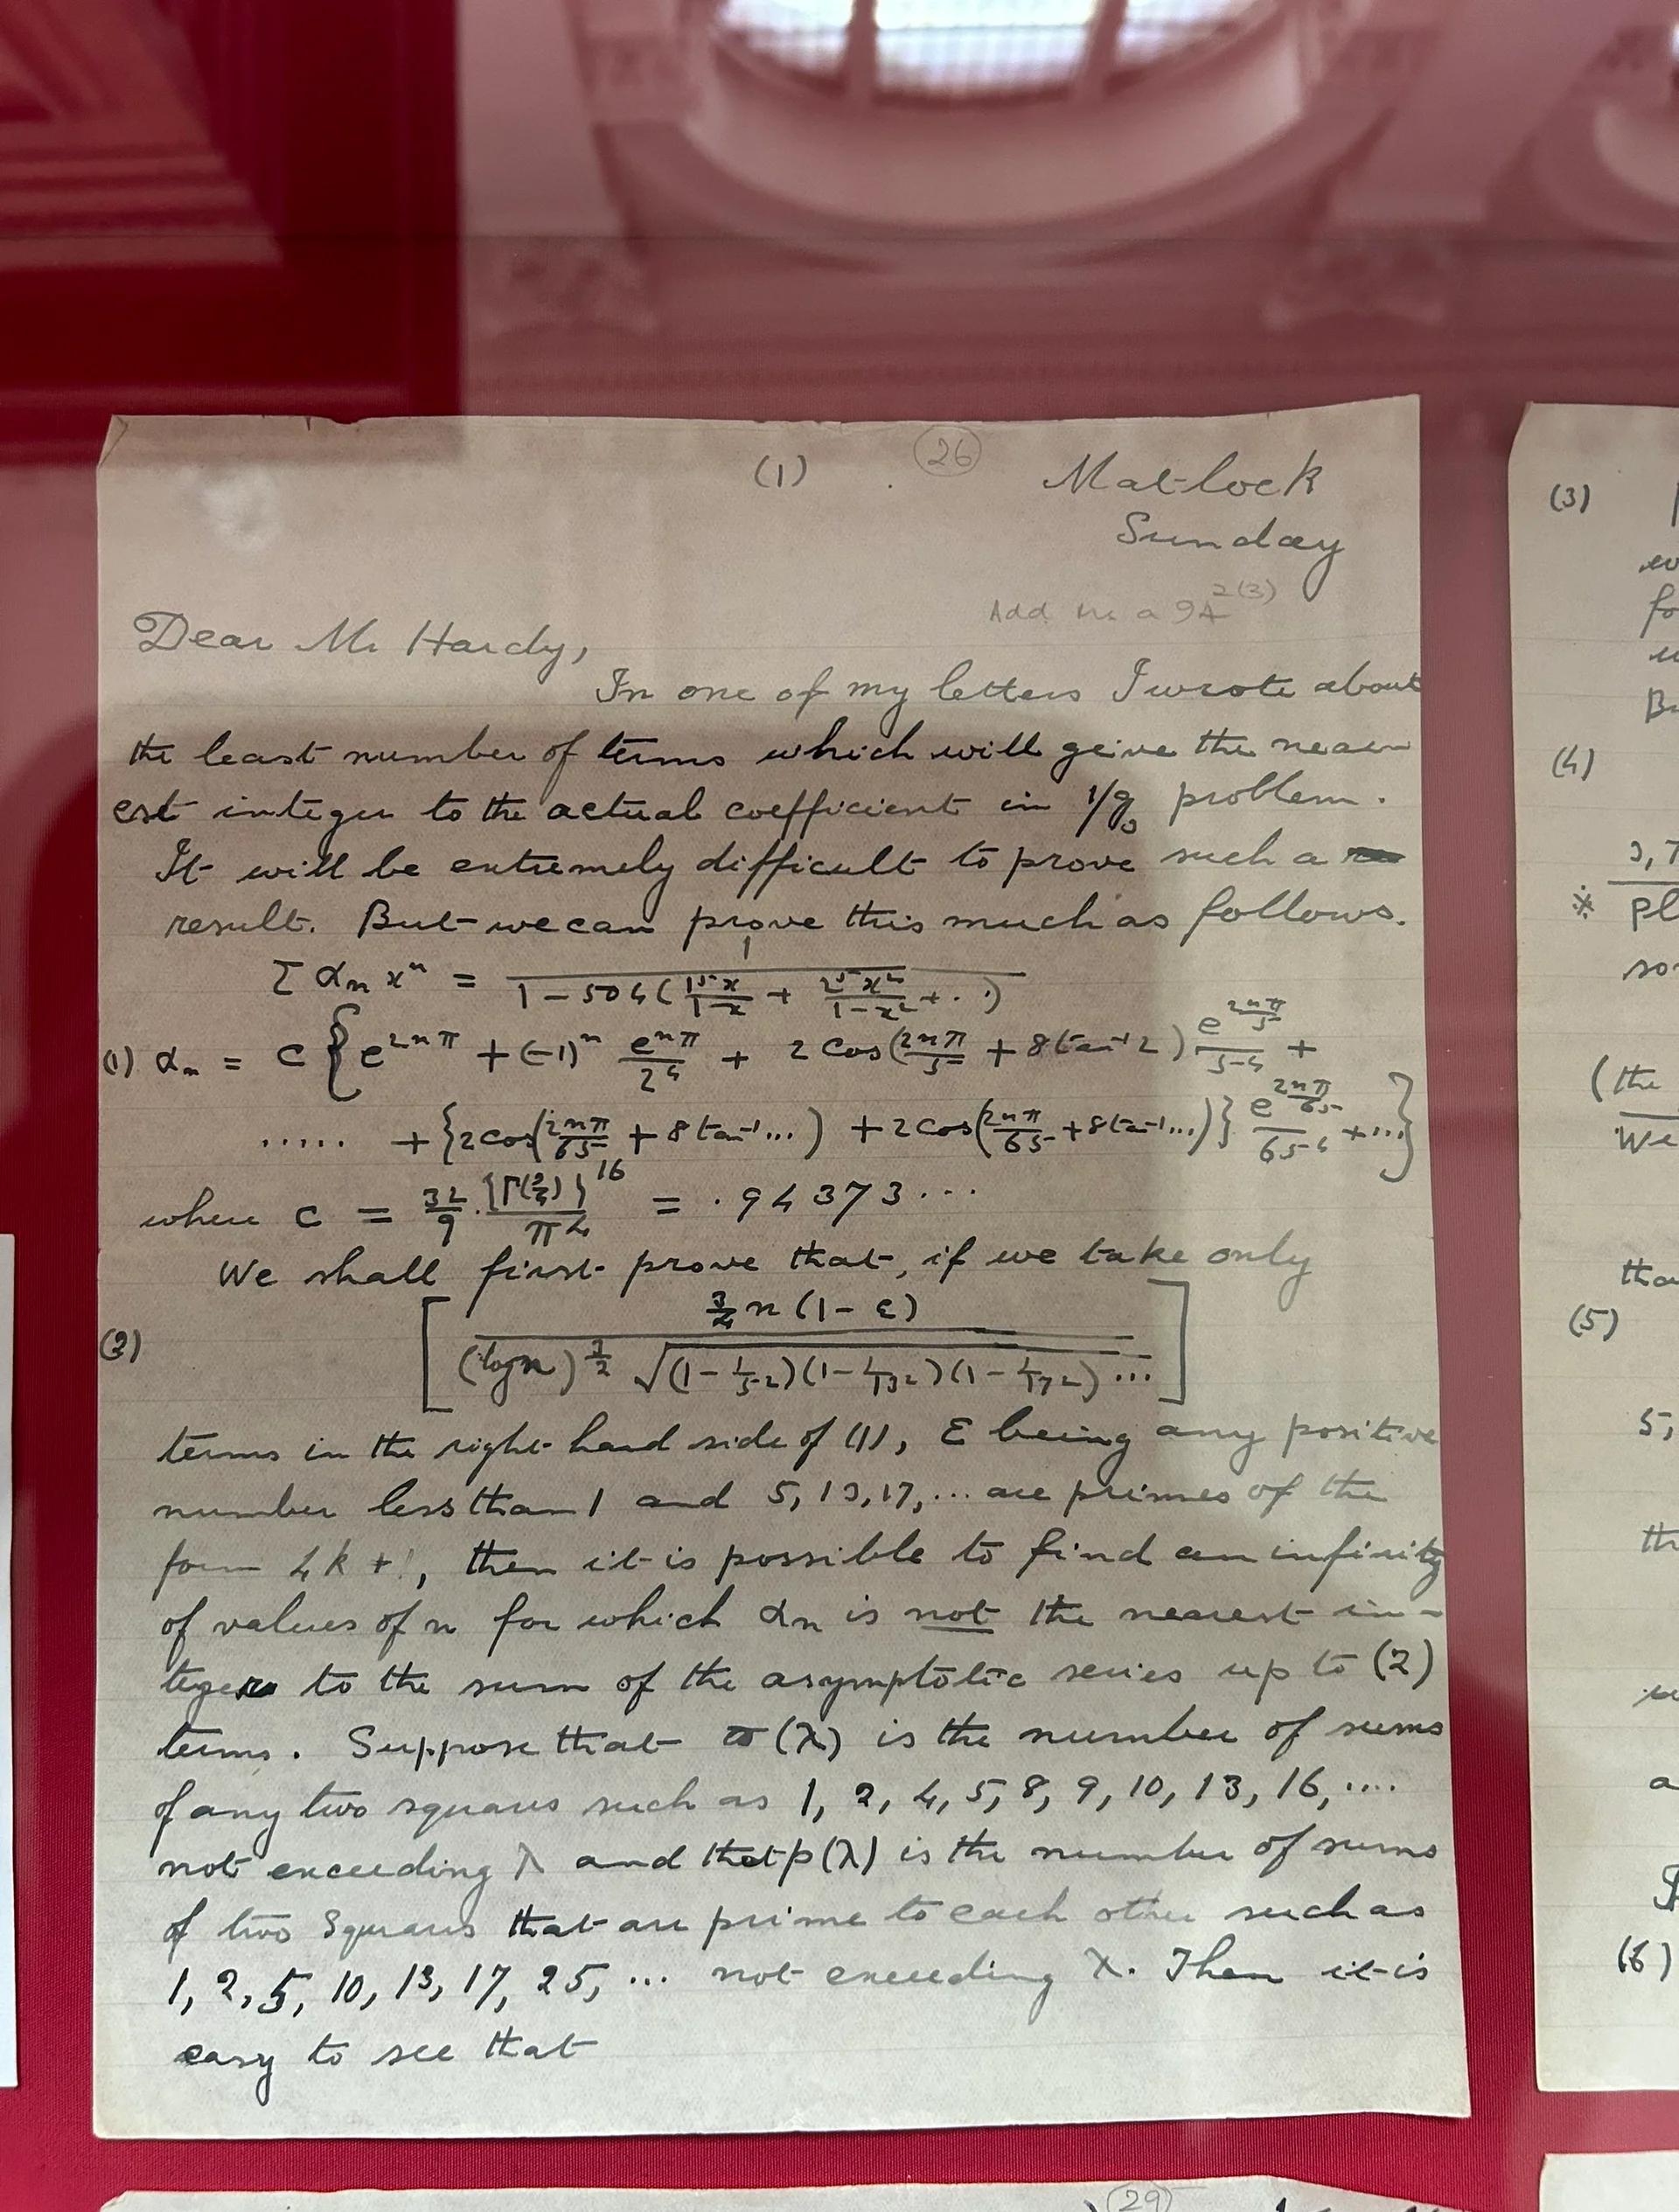 (1)
26
Matlock
Sunday
Add Ms a 94 2(3)
Dear Mr Hardy,
In one of my letters I wrote about
the least number of terms which will geive the near
est integer to the actual coefficient in 1/g₃ problem.
It will be extremely difficult to prove such a
result. But we can prove this much as follows.
Σ αₙ xⁿ = 1 / (1 − 504 (1⁵x/(1−x) + 2⁵x²/(1−x²) + ..))
(1) αₙ = c { e^{2nπ} + (−1)ⁿ e^{nπ}/2⁴ + 2 cos(2nπ/5 + 8 tan⁻¹ 2) e^{2nπ/5}/5⁴ +
..... + {2 cos(2nπ/65 + 8 tan⁻¹...) + 2 cos(2nπ/65 + 8 tan⁻¹...)} e^{2nπ/65}/65⁴ + ...}
where c = 32/9 · {Γ(3/4)}¹⁶/π⁴ = .94373...
We shall first prove that, if we take only
(2) [ 3/4 n (1 − ε) / ((log n)^{3/2} √((1 − 1/5²)(1 − 1/13²)(1 − 1/17²) ...)) ]
terms in the right hand side of (1), ε being any positive
number less than 1 and 5, 13, 17, ... are primes of the
form 4k + 1, then it is possible to find an infinity
of values of n for which αₙ is not the nearest in-
teger to the sum of the asymptotic series up to (2)
terms. Suppose that ϖ(λ) is the number of sums
of any two squares such as 1, 2, 4, 5, 8, 9, 10, 13, 16, ....
not exceeding λ and that p(λ) is the number of sums
of two squares that are prime to each other such as
1, 2, 5, 10, 13, 17, 25, ... not exceeding λ. Then it is
easy to see that
(3)
(4)
(the
we
(5)
5,
(6)
29